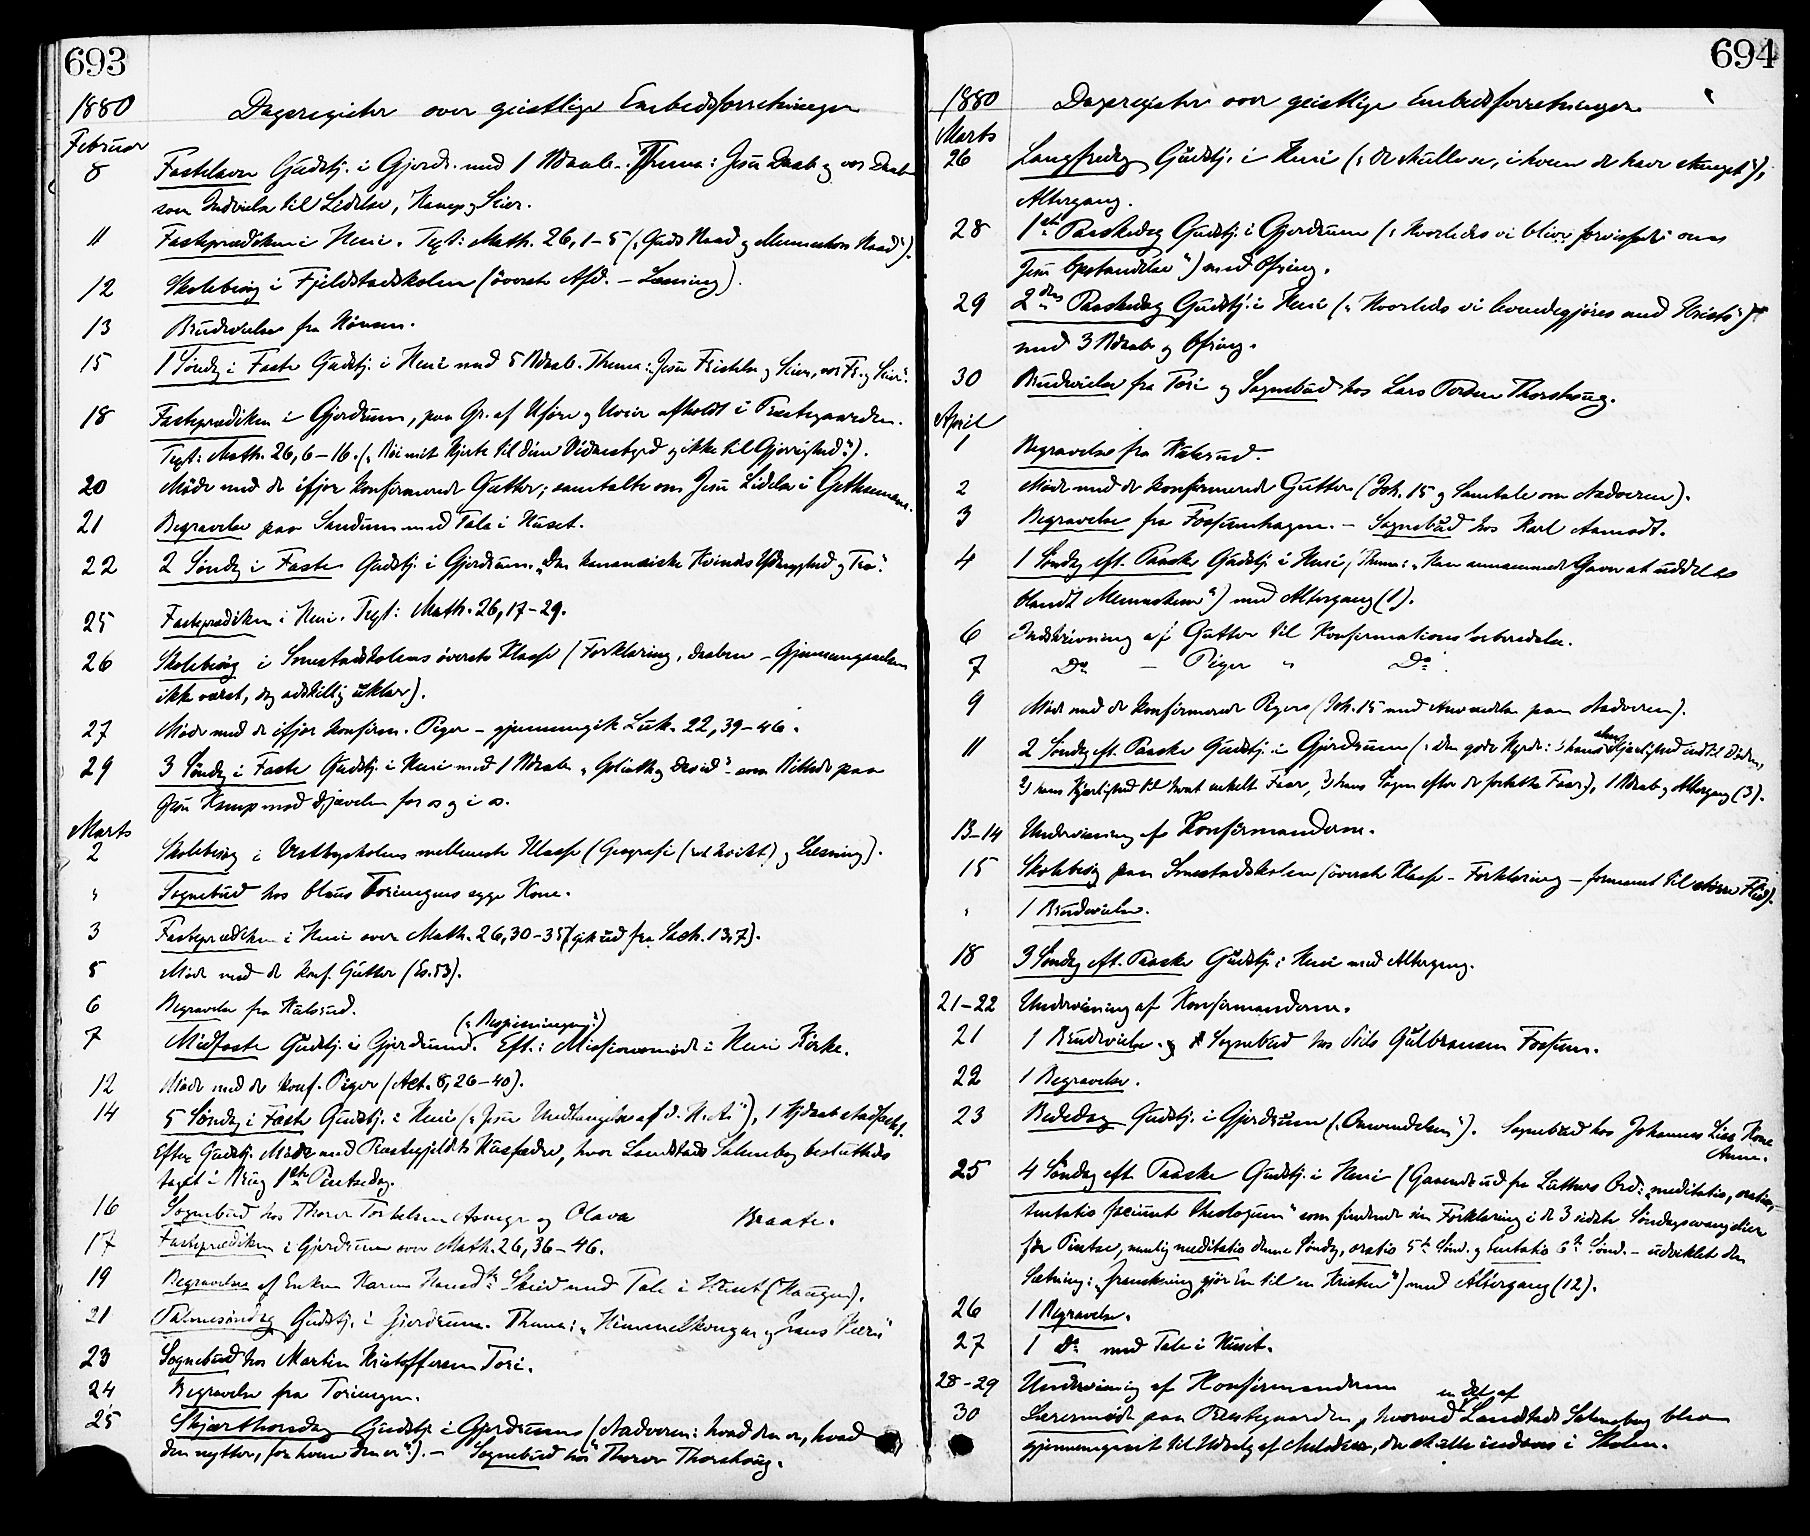 693
1880 Dagsregister over geistlige Embedsforretninger
Februar
8 Fastelavn Gudstj. i Gjerdr. med 1 Vdaab. Thema: Jesu Daab og vor Daab
som Indvielse til Lidelse, Kamp og Seier.
11 Fasteprædiken i Heni. Text: Math. 26, 1-5 („Guds Raad og Menneskers Raad“).
12 Skolebesøg i Fjeldstadskolen (øverste Afd. - Læsning).
13 Brudevielse fra Hønsen.
15 1 Søndag i Faste Gudstj. i Heni med 5 Vdaab. Thema: Jesu Fristelse og Seier, vor Fr. og Seier.
18 Fasteprædiken i Gjerdrum, paa Gr. af Uføre og Uveir afholdt i Præstegaarden.
Text: Math. 26, 6-16. („Bøi mit Hjerte til dine Vidnesbyrd og ikke til Gjerrighed“).
20 Møde med de ifjor konfirmerede Gutter; samtalte om Jesu Lidelse i Gethsemane.
21 Begravelse paa Sandum med Tale i Huset.
22 2 Søndag i Faste Gudstj. i Gjerdrum. „Den kananæiske Kvindes Ydmyghed og Tro“.
25 Fasteprædiken i Heni. Text: Math. 26, 17-29.
26 Skolebesøg i Smestadskolens øverste Klasse (Forklaring, Daaben - Gjennemgaaelsen
ikke værst, dog adskillig uklar).
27 Møde med de ifjor konfirm. Piger - gjennemgik Luk. 22, 39-46.
29 3 Søndag i Faste Gudstj. i Heni med 1 Vdaab „Goliath og David“ som Billede paa
Jesu Kamp mod Djævelen for os og i os.
Marts
2 Skolebesøg i Vestbyskolens mellemste Klasse (Geografi og Læsning).
" Sognebud hos Olaus Toriengens syge Kone.
3 Fasteprædiken i Heni over Math. 26, 30-35 (gik ud fra Sach. 13,7).
5 Møde med de konf. Gutter (Es. 53).
6 Begravelse fra Kulsrud.
7 Midfaste Gudstj. i Gjerdrum. („Bespisningen“) Eft.: Missionsmøde i Heni Kirke.
12 Møde med de konf. Piger (Act. 8, 26-40).
14 5 Søndag i Faste Gudstj. i Heni 1 Hjdaab stadfæstet.
Efter Gudstj. Møde med Præstegjeldets Husfædre, hvor Landstads Salmebog besluttedes
taget i Brug 1ste Pintsedag.
16 Sognebud hos Thorer Torkelsen og Olava Braate.
17 Fasteprædiken i Gjerdrum over Math. 26, 36-46.
19 Begravelse af Enken Karen Skeid med Tale i Huset (Haugen).
21 Palmesøndag Gudstj. i Gjerdrum. Thema: „Himmelkongen og Jesus
23 Sognebud hos Martin Kristoffersen Tori.
24 Begravelse fra Toriengen.
25 Skjærthorsdag Gudstj. i Gjerdrum (Nadveren: hvad den er, hvad
den nytter, for hvem den er“). - Sognebud hos Thorer Thorshoug.
694
1880 Dagsregister over geistlige Embedsforretninger
Marts
26 Langfredag Gudstj. i Heni („De skulle se, i hvem de have stunget“),
Altergang.
28 1ste Paaskedag Gudstj. i Gjerdrum („Hvorledes vi blive forvissede om
Jesu Opstandelse“) med Ofring.
29 2den Paaskedag Gudstj. i Heni („Hvorledes vi levendegjøres med Kristo“)
med 3 Vdaab og Ofring.
30 Brudevielse fra Tori og Sognebud hos Lars Thorshoug.
April
1 Begravelse fra Kulsrud.
2 Møde med de konfirmerede Gutter (Joh. 15 og Samtale om Nadveren).
3 Begravelse fra Fossumhagen. - Sognebud hos Karl Aamodt.
4 1 Søndag eft. Paaske Gudstj. i Heni, (Thema: „Han annammede Gaver at uddele
blandt Menneskene“) med Altergang (1).
6 Indskrivning af Gutter til Konfirmationsforberedelse.
7 Do - Piger " Do
9 Møde med de konfirmerede Piger (Joh. 15 med Anvendelse paa Nadveren).
11 2 Søndag eft. Paaske Gudstj. i Gjerdrum („Den gode Hyrde: 1) hans alm. Kjærlighed indtil Døden,
2) hans Kjærlighed til hvert enkelt Faar, 3) hans Søgen efter de fortabte Faar), 1 Vdaab og Altergang (3).
13-14 Undervisning af Konfirmanderne.
15 Skolebesøg paa Smestadskolen (øverste Klasse - Forklaring - formanet til større Flid).
" 1 Brudevielse.
18 3 Søndag eft. Paaske Gudstj. i Heni med Altergang.
21-22 Undervisning af Konfirmanderne.
21 1 Brudevielse. og Sognebud hos Nils Gulbransen Fossum.
22 1 Begravelse.
23 Bededag Gudstj. i Gjerdrum („Omvendelsen“). Sognebud hos Johannes Lies Kone
Anne.
25 4 Søndag eft. Paaske Gudstj. i Heni (Gaaende ud fra Luthers Ord: „meditatio, oratio,
tentatio faciunt theologum“ som findende sin Forklaring i de 3 sidste Søndagsevangelier
før Pintse, nemlig meditatio denne Søndag, oratio 5te Sønd. og tentatio 6te Sønd. - udviklet den
Sætning: gjør En til en Kristen“) med Altergang (12).
26 1 Begravelse.
27 1 Do med Tale i Huset.
28-29 Undervisning af Konfirmanderne
30 Lærermøde paa Præstegaarden, hvorved en Del af Landstads Salmebog blev
gjennemgaaet til Udvalg af Melodier, der skulle indøves i Skolen.